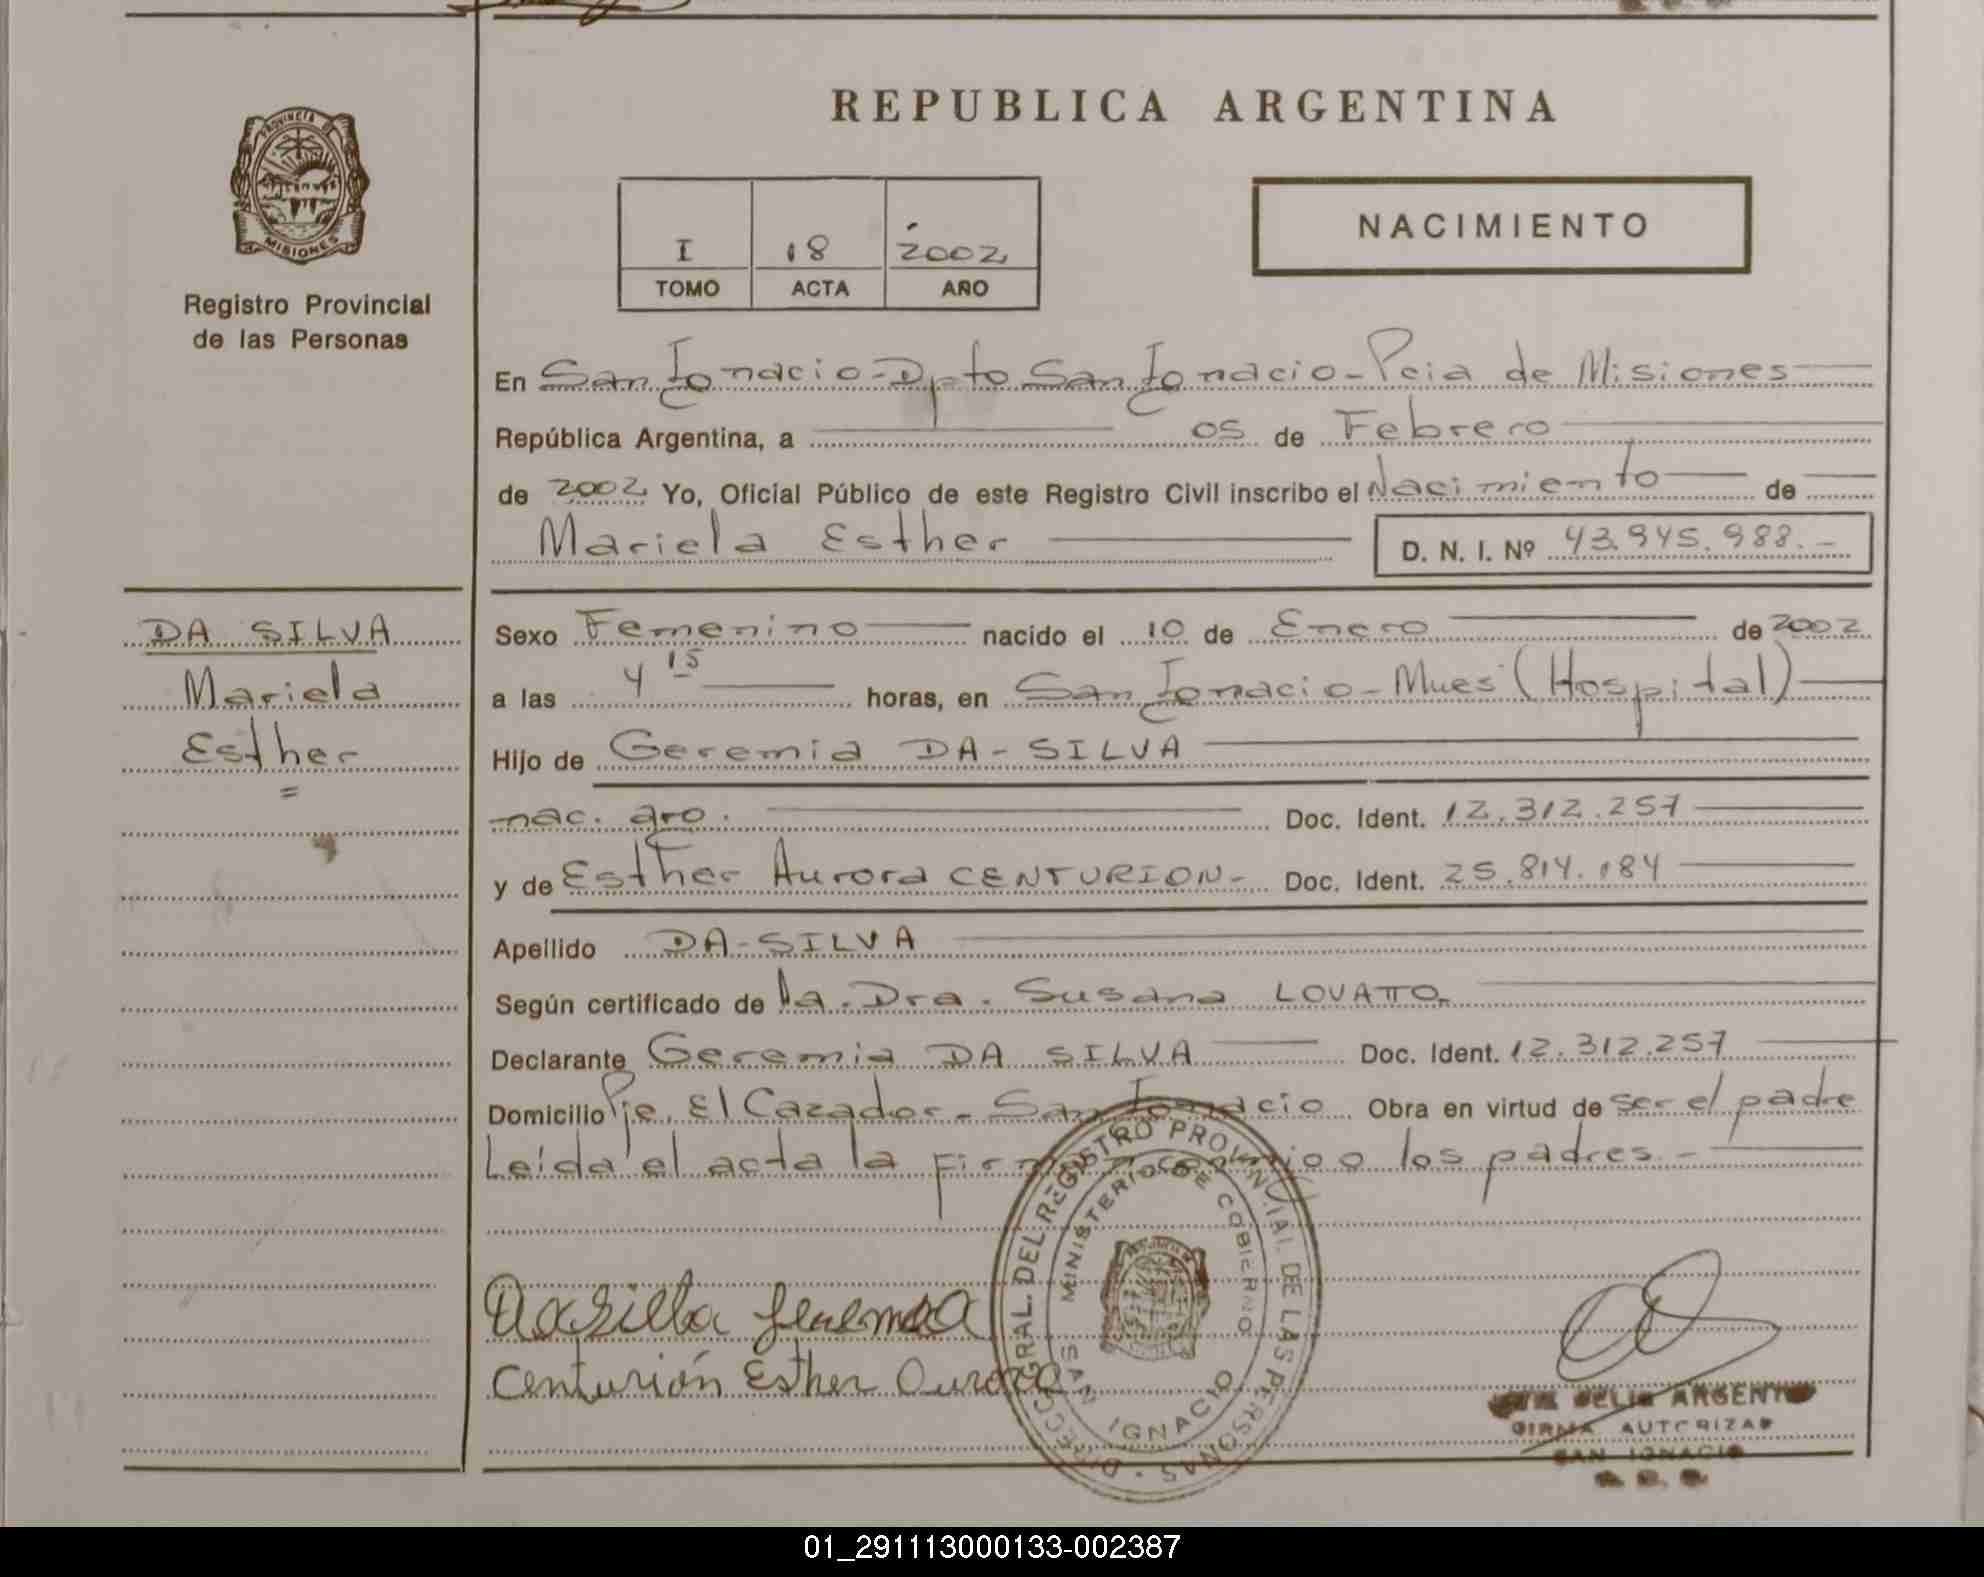 REPUBLICA ARGENTINA
PROVINCIA DE
MISIONES
Registro Provincial
de las Personas
I 18 2002
TOMO ACTA AÑO
NACIMIENTO
En San Ignacio-Dpto San Ignacio-Pcia de Misiones
República Argentina, a 05 de Febrero
de 2002 Yo, Oficial Público de este Registro Civil inscribo el Nacimiento de
Mariela Esther D. N. I. Nº 43.945.988.-
DA SILVA
Mariela
Esther
Sexo Femenino nacido el 10 de Enero de 2002
a las 4 15 horas, en San Ignacio-Mnes (Hospital)
Hijo de Geremia DA-SILVA
nac. arg. Doc. Ident. 12.312.257
y de Esther Aurora CENTURION- Doc. Ident. 25.814.184
Apellido DA-SILVA
Según certificado de la Dra. Susana LOVATTO.
Declarante Geremia DA SILVA Doc. Ident. 12.312.257
Domicilio Pje. El Cazador- San Ignacio Obra en virtud de ser el padre
Leída el acta la firman conmigo los padres.-
Dasilba Geremia
Centurión Esther Aurora
DIRECC. GRAL. DEL REGISTRO PROVINCIAL DE LAS PERSONAS
MINISTERIO DE GOBIERNO
SAN IGNACIO
ARGENTINO
FIRMA AUTORIZAD
SAN IGNACIO
01_291113000133-002387